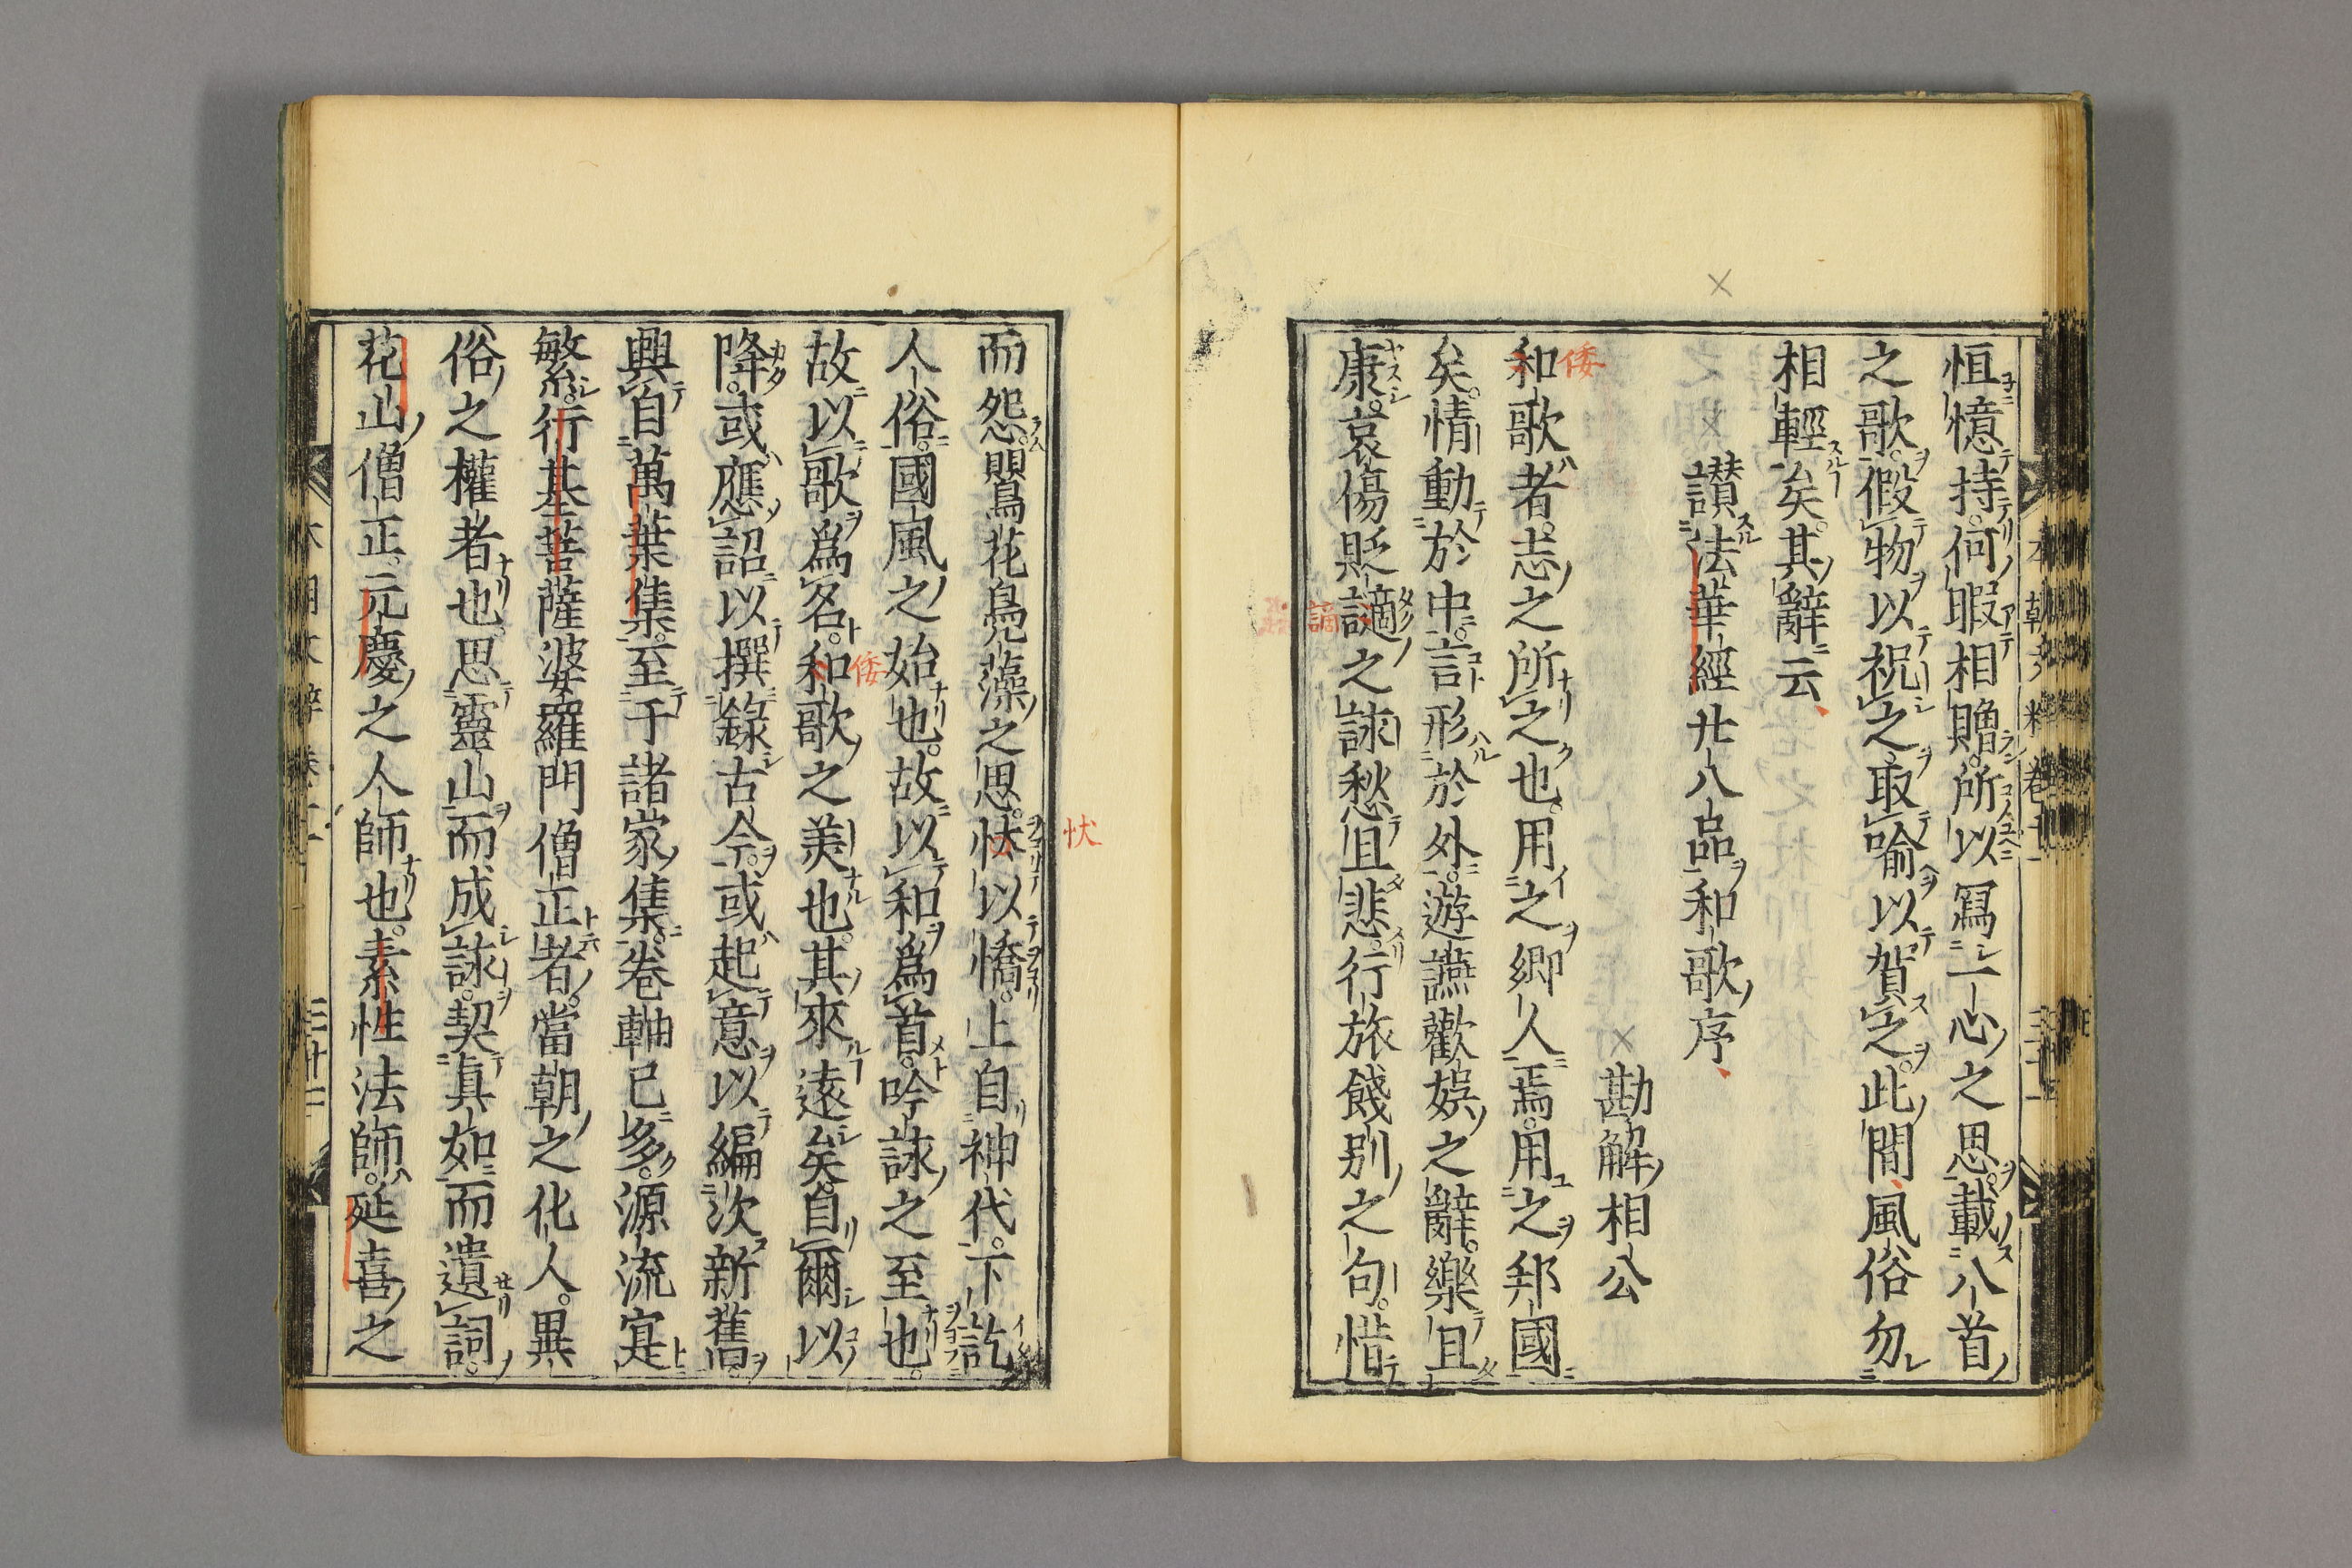 恒憶持。何暇相贈。所以寫一心之思。載八首
之歌。假物以祝之。取喩以賀之。此間風俗勿
相輕矣。其辭云
讃法華經廿八品和歌序
勘解相公
倭
和歌者。志之所之也。用之郷人焉。用之邦國
矣。情動於中。言形於外。遊讌歡娯之辭。樂且
康。哀傷貶謫之詠。愁且悲。行旅餞別之句。惜
謫
而怨。鸎花鳧藻之思。怯以憍。上自神代。下訖
忕
人俗。國風之始也。故以和爲首。吟詠之至也。
故以歌爲名。和歌之美也。其來遠矣。自爾以
倭
降。或應詔以撰録古今。或起意以編次新舊。
興自萬葉集。至于諸家集。卷軸已多。源流寔
繁。行基菩薩婆羅門僧正者。當朝之化人。異
俗之權者也。思靈山而成詠。契眞如而遺詞。
花山僧正。元慶之人師也。素性法師。延喜之
本朝文粹卷十一
三十二